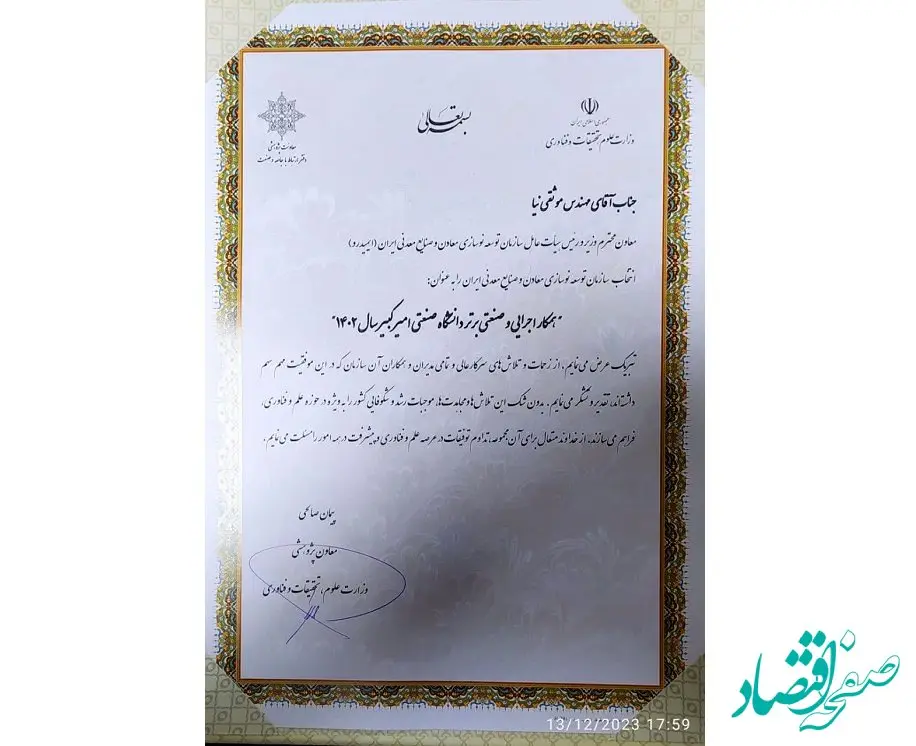 بسمه تعالی
جمهوری اسلامی ایران
وزارت علوم تحقیقات و فناوری
معاونت پژوهشی
دفتر ارتباط با جامعه و صنعت
جناب آقای مهندس موثقی نیا
معاون محترم وزیر و رئیس هیأت عامل سازمان توسعه نوسازی معادن و صنایع معدنی ایران (ایمیدرو)
انتخاب سازمان توسعه نوسازی معادن و صنایع معدنی ایران را به عنوان:
"همکار اجرایی و صنعتی برتر دانشگاه صنعتی امیرکبیر سال ۱۴۰۲"
تبریک عرض می نمایم، از زحمات و تلاش های سرکارعالی و تمامی مدیران و همکاران آن سازمان که در این موفقیت مهم سهم
داشته‌اند، تقدیر و تشکر می نمایم. بدون شک این تلاش‌ها و مجاهدت‌ها، موجبات رشد و شکوفایی کشور را به ویژه در حوزه علم و فناوری،
فراهم می سازند. از خداوند متعال برای آن مجموعه، تداوم توفیقات در عرصه علم و فناوری و پیشرفت در همه امور را مسئلت می نمایم.
پیمان صالحی
معاون پژوهشی
وزارت علوم، تحقیقات و فناوری
13/12/2023 17:59
صفحه اقتصاد